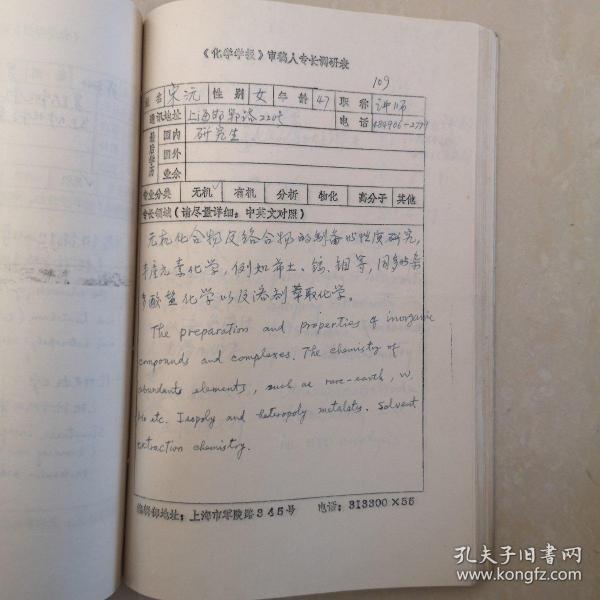 《化学学报》审稿人专长调研表
109
姓名 宋沅 性别 女 年龄 47 职称 讲师
通讯地址 上海邯郸路220号 电话 484906-2779
最后学历 国内 研究生
国外
业余
专业分类 无机 ✓ 有机 分析 物化 高分子 其他
专长领域（请尽量详细，中英文对照）
无机化合物及络合物的制备性质研究,
丰产元素化学，例如稀土、钨、钼等，同多酸杂
多酸盐化学以及溶剂萃取化学。
The preparation and properties of inorganic
compounds and complexes. The chemistry of
abundants elements, such as rare-earth, W,
Mo etc. Isopoly and heteropoly metalates. Solvent
extraction chemistry.
编辑部地址：上海市零陵路345号 电话：313300×55
孔夫子旧书网
www.kongfz.com